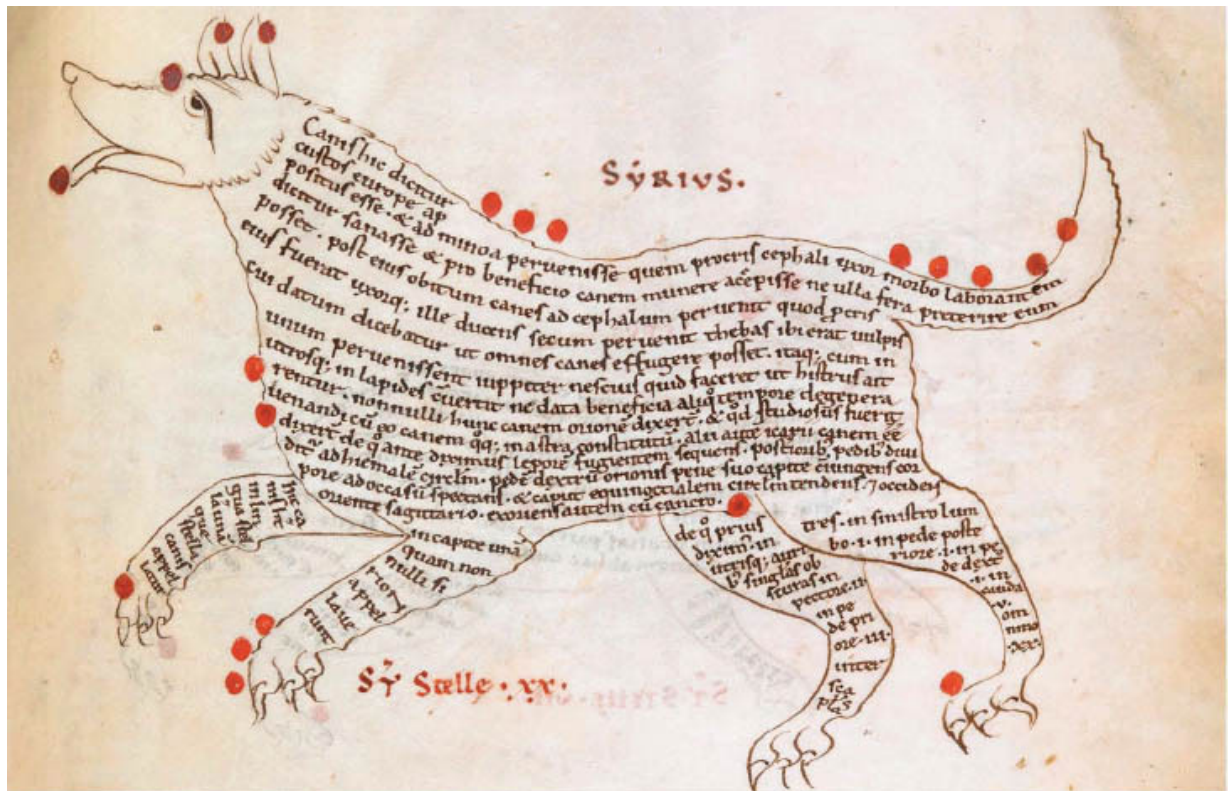 SẏRIVS.
Canis hic dicitur
custos europe ap
positus esse. & ad minoa pervenisse quem procris cephali uxor morbo laborantem
dicitur sanasse & pro beneficio canem munere acępisse ne ulla fera preterire eum
posset. post eius obitum canes ad cephalum pervenit quod pcris
eius fuerat uxorq; ille ducens secum pervenit thebas ibi erat vulpis
cui datum dicebatur ut omnes canes effugere posset. itaq; cum in
unum pervenissent iuppiter nescius quid faceret ut histrus ait
utrosq; in lapides cuertit ne data beneficia aliq tempore degenera
rentur. nonnulli hunc canem orione dixert. & qd studiosus fuerit
uenandi cū eo canem qq; in astra constitutū. alii autē icarii canem eē
dixert de q ante diximus leporē fugientem sequens. posterioribus pedib; divi
dit adhiemalē circlm. pedē dextrū orionis pene suo capite ciungens cor
pore ad occasū spectans. & caput equinoctialem circlm tendens. 7 occidens
oriente sagittario. exoriens autem cū cancro.
hic ca
nis hr
in lin
gua stel
la unā
que
stella
canis
appel
latur
in capite unā
quam non
nulli si
rion
appel
lave
runt
de q prius
diximꝰ. in
utrisq; auri
b; singlas ob
scuras in
pectore .ii.
in pe
de pri
ore .iii.
inter
sca
plas
tres. in sinistro lum
bo .i. in pede poste
riore .i. in pe
de dext
.i. in
cauda
.v.
om
nino
.xx.
Sẏ Stelle .xx.